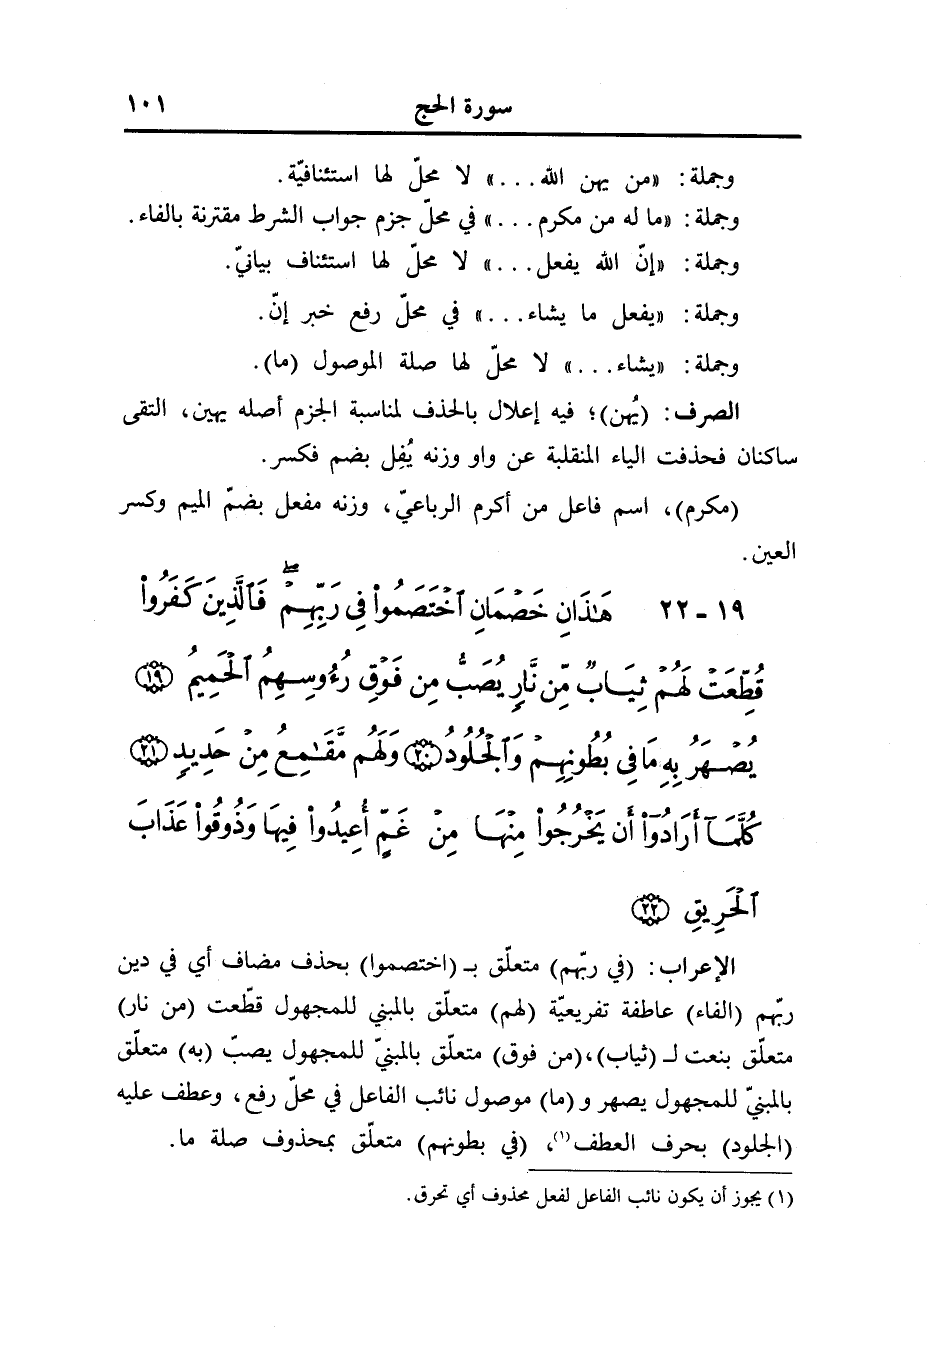 سورة الحج ١٠١
وجملة: «من يهن الله...» لا محلّ لها استئنافيّة.
وجملة: «ما له من مكرم...» في محلّ جزم جواب الشرط مقترنة بالفاء.
وجملة: «إنّ الله يفعل...» لا محلّ لها استئناف بيانيّ.
وجملة: «يفعل ما يشاء...» في محلّ رفع خبر إنّ.
وجملة: «يشاء...» لا محلّ لها صلة الموصول (ما).
الصرف: (يُهن)؛ فيه إعلال بالحذف لمناسبة الجزم أصله يهين، التقى
ساكنان فحذفت الياء المنقلبة عن واو وزنه يُفِل بضم فكسر.
(مكرم)، اسم فاعل من أكرم الرباعيّ، وزنه مفعل بضمّ الميم وكسر
العين.
١٩ - ٢٢ هَٰذَانِ خَصْمَانِ ٱخْتَصَمُوا۟ فِى رَبِّهِمْ ۖ فَٱلَّذِينَ كَفَرُوا۟
قُطِّعَتْ لَهُمْ ثِيَابٌ مِّن نَّارٍ يُصَبُّ مِن فَوْقِ رُءُوسِهِمُ ٱلْحَمِيمُ ﴿١٩﴾
يُصْهَرُ بِهِۦ مَا فِى بُطُونِهِمْ وَٱلْجُلُودُ ﴿٢٠﴾ وَلَهُم مَّقَٰمِعُ مِنْ حَدِيدٍ ﴿٢١﴾
كُلَّمَآ أَرَادُوٓا۟ أَن يَخْرُجُوا۟ مِنْهَا مِنْ غَمٍّ أُعِيدُوا۟ فِيهَا وَذُوقُوا۟ عَذَابَ
ٱلْحَرِيقِ ﴿٢٢﴾
الإعراب: (في ربّهم) متعلّق بـ (اختصموا) بحذف مضاف أي في دين
ربّهم (الفاء) عاطفة تفريعيّة (لهم) متعلّق بالمبني للمجهول قطّعت (من نار)
متعلّق بنعت لـ (ثياب)، (من فوق) متعلّق بالمبنيّ للمجهول يصبّ (به) متعلّق
بالمبنيّ للمجهول يصهر و (ما) موصول نائب الفاعل في محلّ رفع، وعطف عليه
(الجلود) بحرف العطف(١)، (في بطونهم) متعلّق بمحذوف صلة ما.
(١) يجوز أن يكون نائب الفاعل لفعل محذوف أي تحرق.